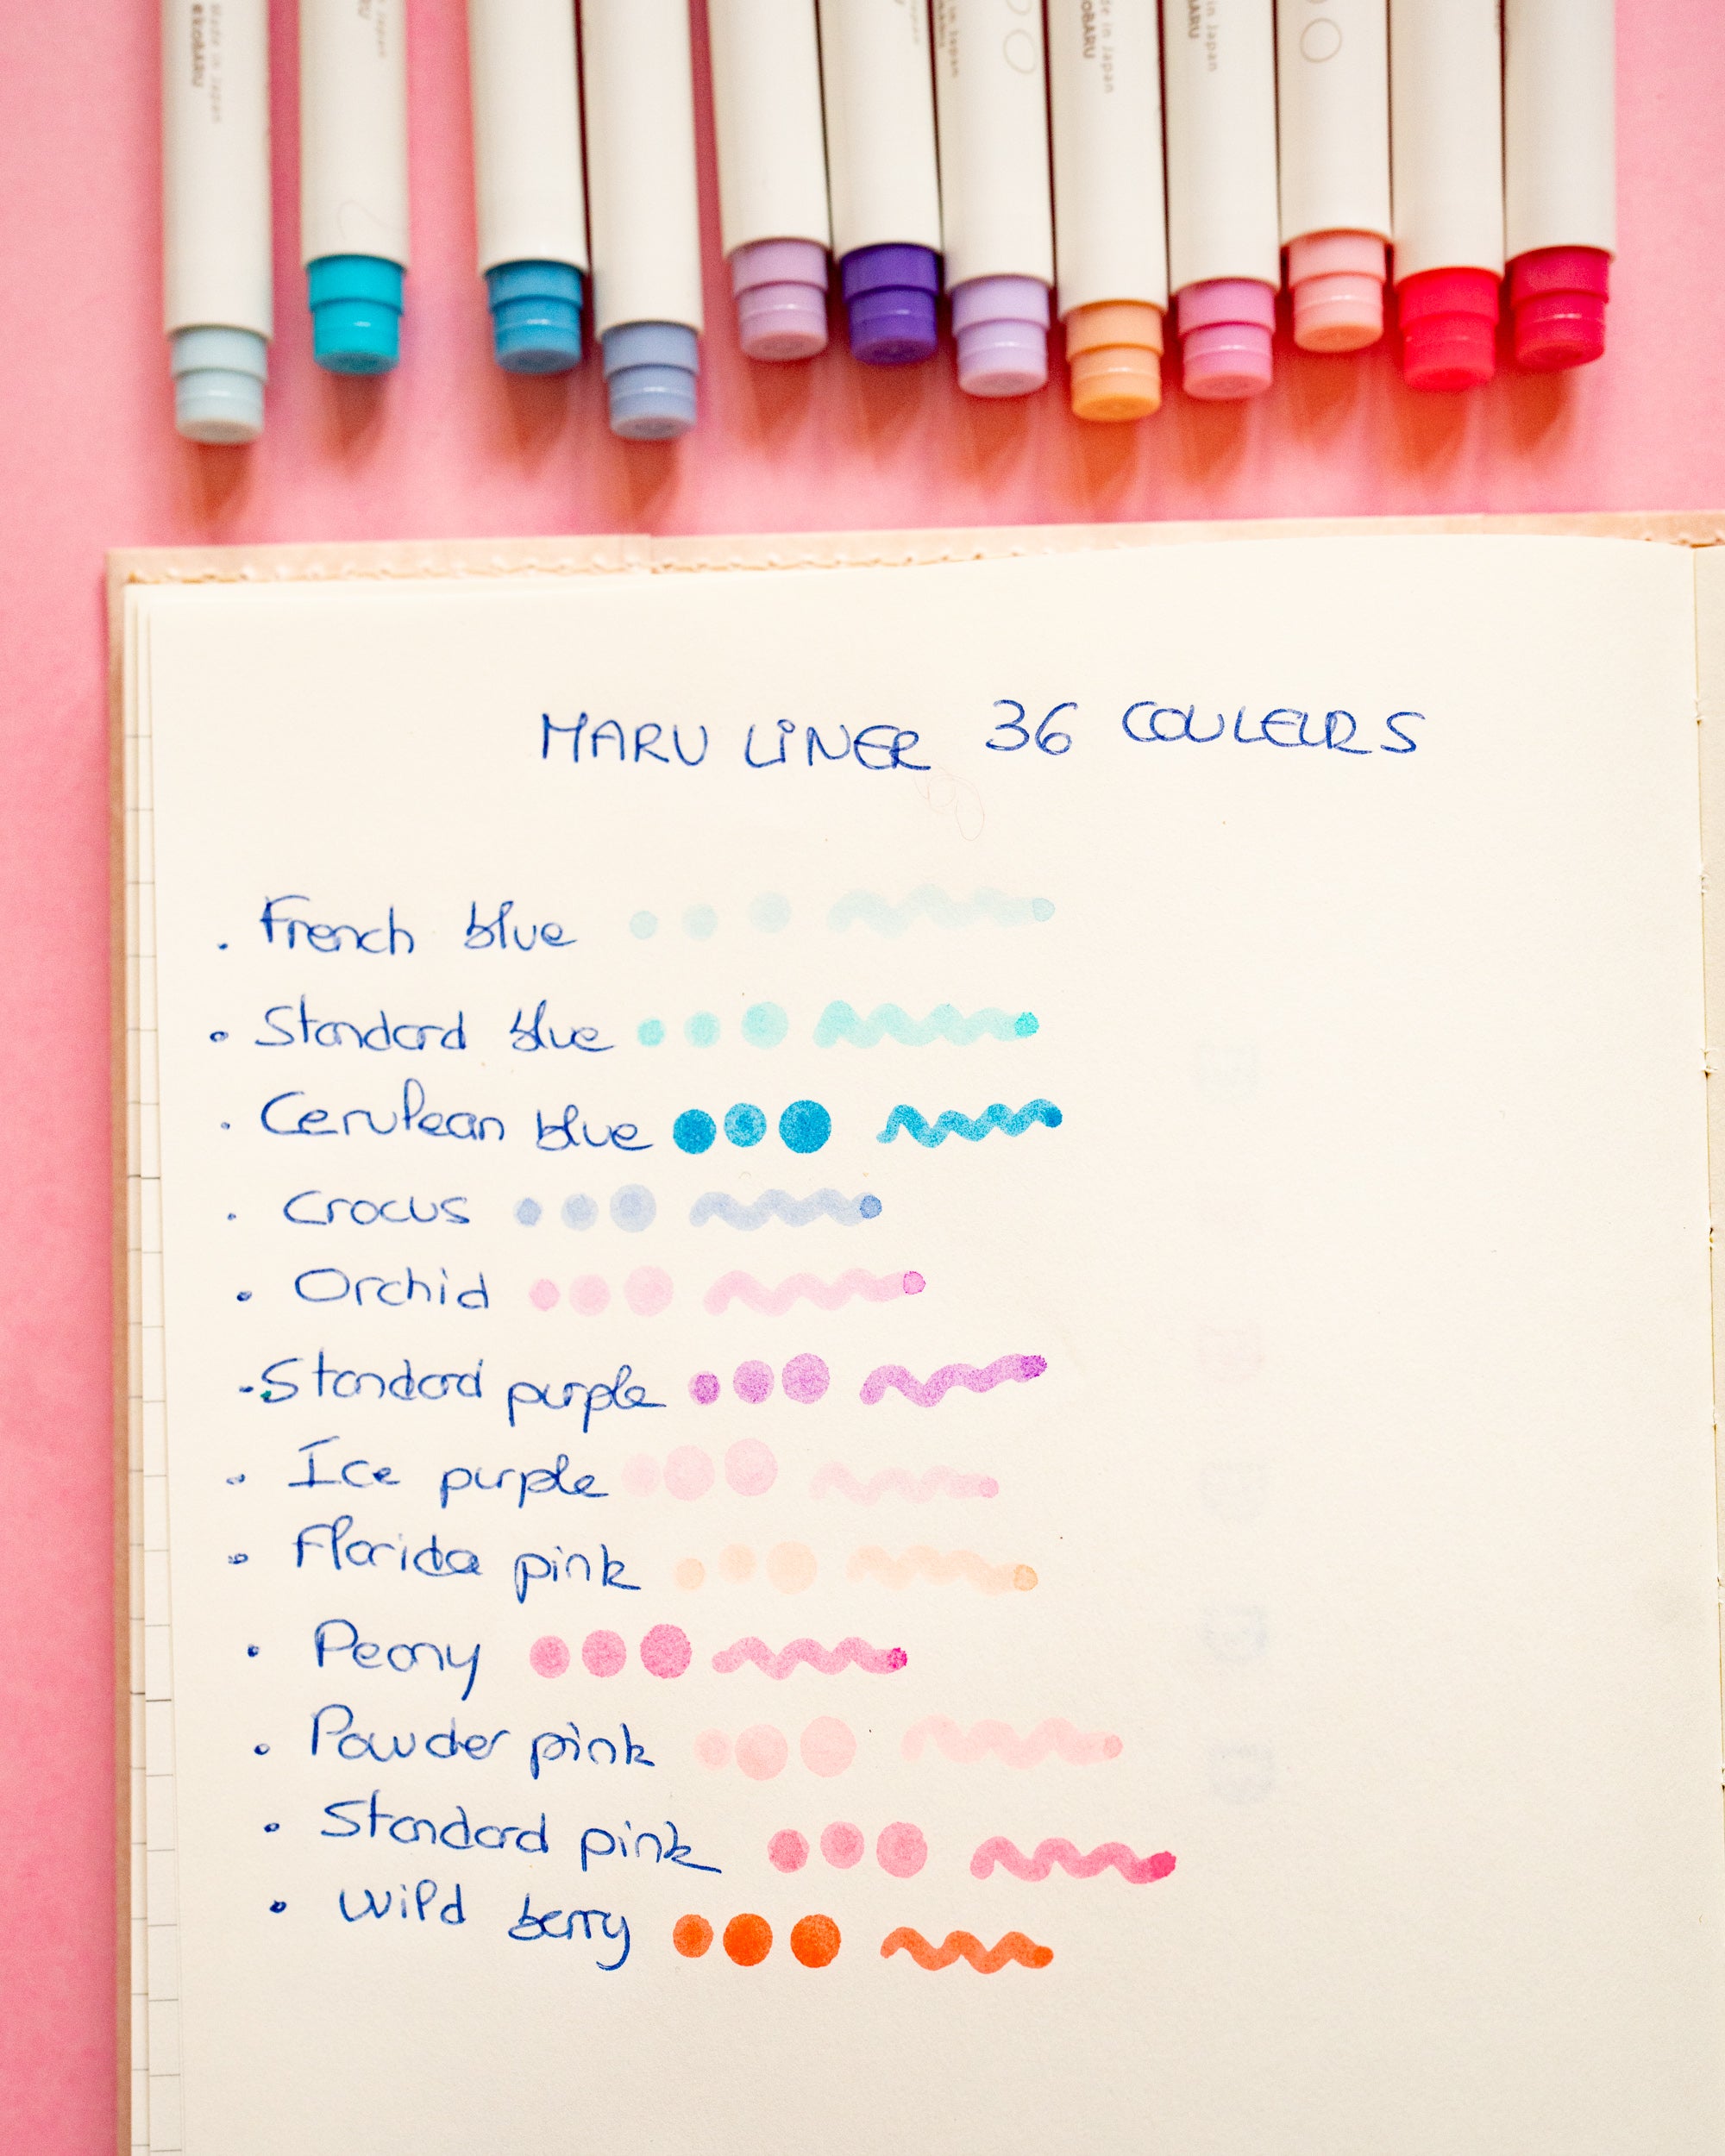 Made in Japan
ekoBARU
MARU LINER 36 COULEURS
. French blue
. Standard blue
. Cerulean blue
. Crocus
. Orchid
. Standard purple
. Ice purple
. Florida pink
. Peony
. Powder pink
. Standard pink
. Wild berry